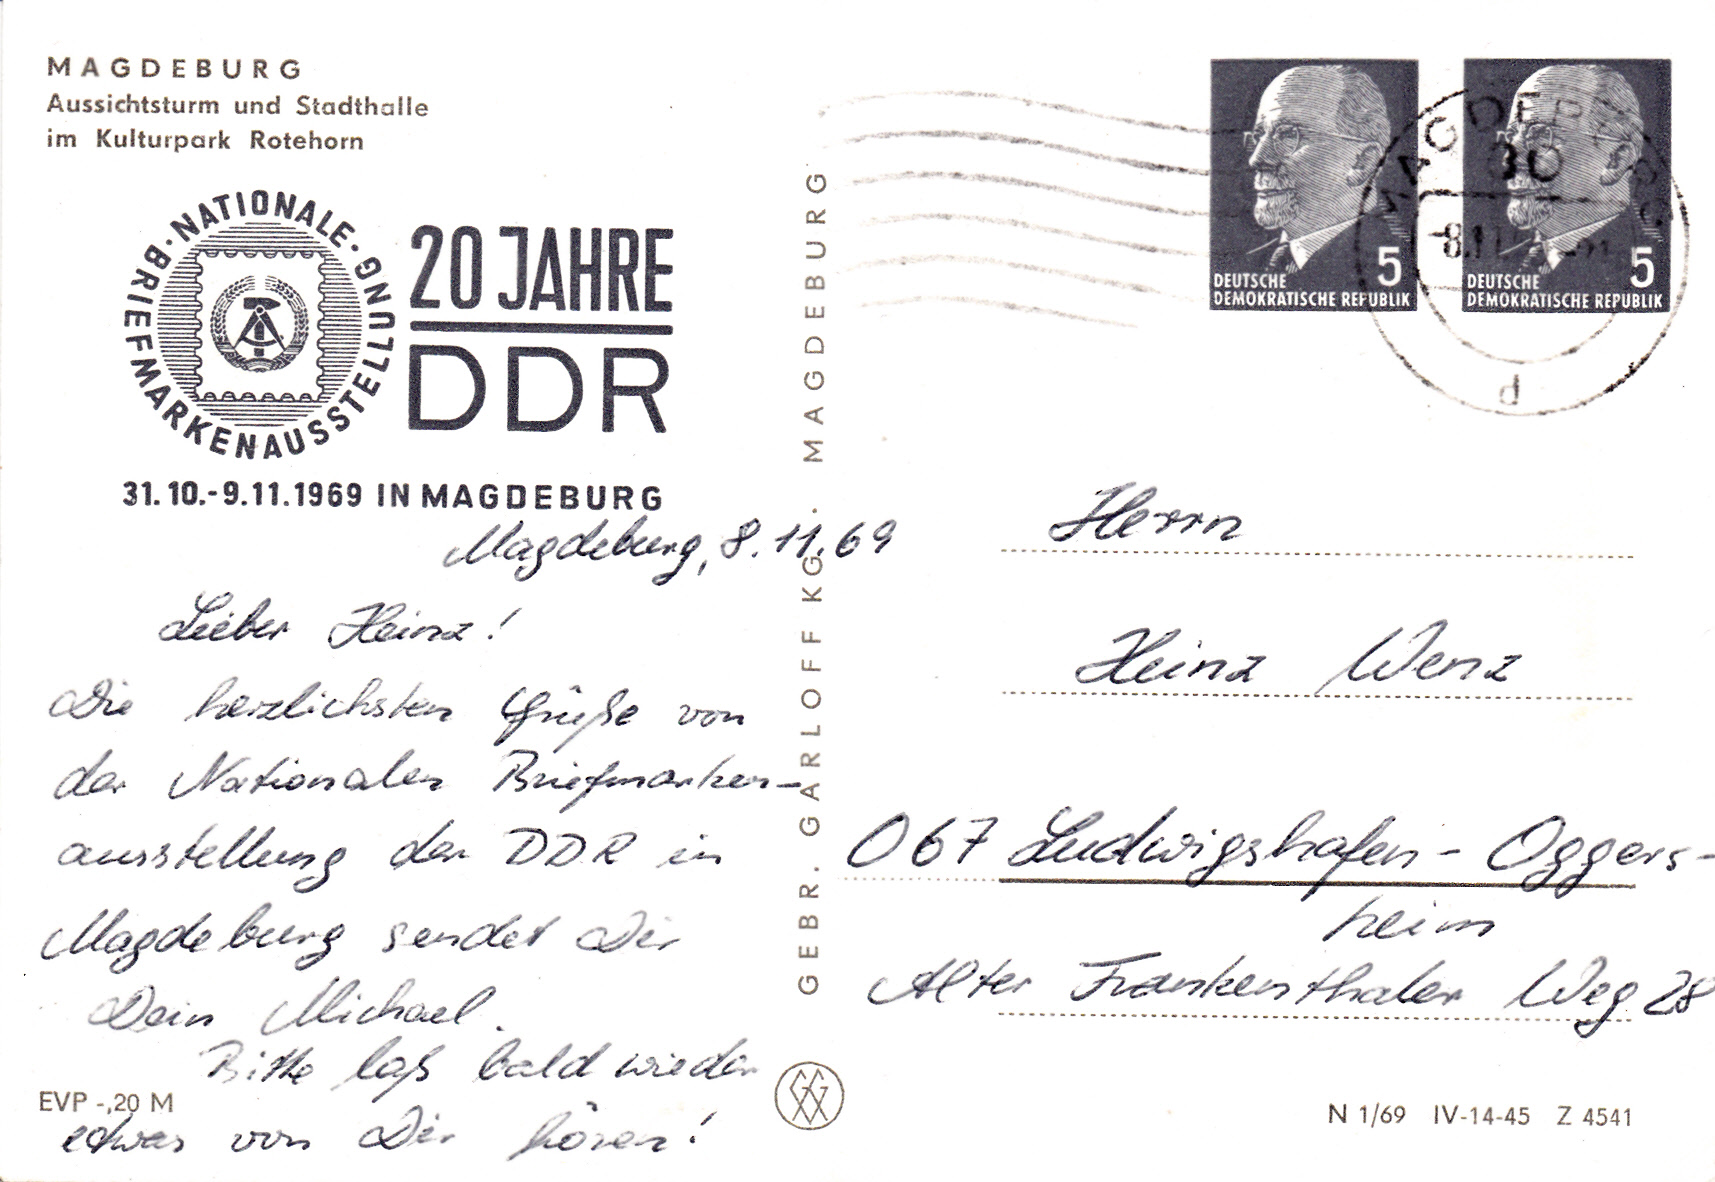 MAGDEBURG
Aussichtsturm und Stadthalle
im Kulturpark Rotehorn
NATIONALE · BRIEFMARKENAUSSTELLUNG ·
20 JAHRE
DDR
31.10.-9.11.1969 IN MAGDEBURG
Magdeburg, 8.11.69
Lieber Heinz!
Die herzlichsten Grüße von
der Nationalen Briefmarken-
ausstellung der DDR in
Magdeburg sendet Dir
Dein Michael.
Bitte laß bald wieder
etwas von Dir hören!
EVP -,20 M
GEBR. GARLOFF KG. · MAGDEBURG
5
DEUTSCHE
DEMOKRATISCHE REPUBLIK
5
DEUTSCHE
DEMOKRATISCHE REPUBLIK
MAGDEBURG
30
-8.11
d
Herrn
Heinz Wenz
067 Ludwigshafen - Oggers-
heim
Alter Frankenthaler Weg 28
N 1/69 IV-14-45 Z 4541